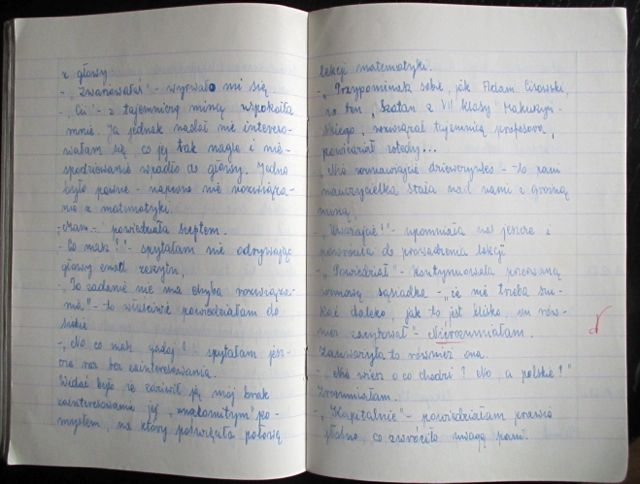 z głowy.
- „Zwariowałaś" - wyrwało mi się
- „Cii" - z tajemniczą miną uspokoiła
mnie. Ja jednak nadal nie intereso-
wałam się, co jej tak nagle i nie-
spodziewanie wpadło do głowy. Jedno
było pewne - na pewno nie rozwiąza-
nie z matematyki.
- „Mam" - powiedziała szeptem.
- Co masz?" - spytałam nie odrywając
głowy znad zeszytu.
- „To zadanie nie ma chyba rozwiąza-
nia" - to właściwie powiedziałam do
siebie
- „No co masz, gadaj" - spytałam jesz-
cze raz bez zainteresowania.
Widać było że zdziwił ją mój brak
zainteresowania jej „znakomitym" po-
mysłem, na który poświęciła połowę
lekcji matematyki.
- „Przypominasz sobie, jak Adam Cisowski,
no ten „Szatan z VII klasy" Makuszyń-
skiego, rozwiązał tajemnicę profesora,
powiedział wtedy...
„No rozmawiajcie dziewczynki - to pani
nauczycielka stała nad nami z groźną
miną.
„Uważajcie" - upomniała nas jeszcze i
powróciła do prowadzenia lekcji
- „Powiedział" - kontynuowała przerwaną
rozmowę sąsiadka - „że nie trzeba szu-
kać daleko, jak to jest blisko, on rów-
nież zacytował" - Nierozumiałam.
Zauważyła to również ona.
- „Nie wiesz o co chodzi? No, a polskie?"
Zrozumiałam.
- „Kapitalnie" - powiedziałam prawie
głośno, co zwróciło uwagę pani.